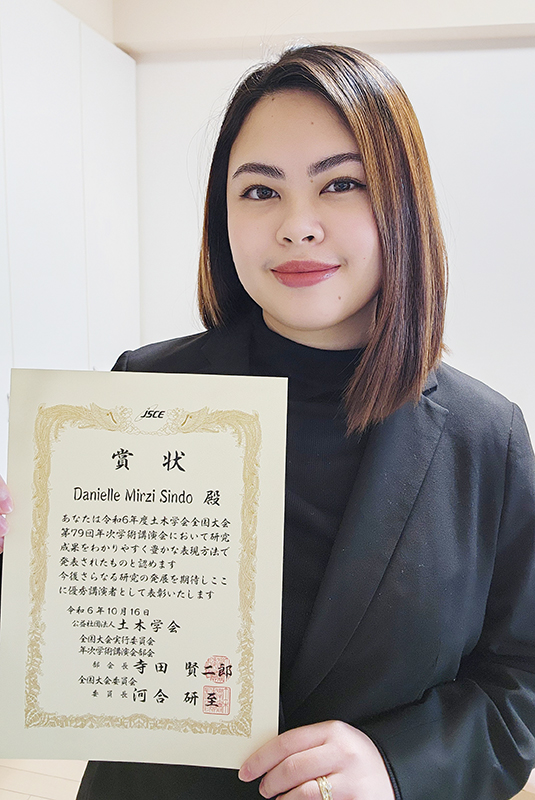 JSCE
賞状
Danielle Mirzi Sindo 殿
あなたは令和6年度土木学会全国大会
第79回年次学術講演会において研究
成果をわかりやすく豊かな表現方法で
発表されたものと認めます
今後さらなる研究の発展を期待しここ
に優秀講演者として表彰いたします
令和6年10月16日
公益社団法人 土木学会
全国大会実行委員会
年次学術講演会部会
部会長 寺田 賢二郎
全国大会委員会
委員長 河合 研至